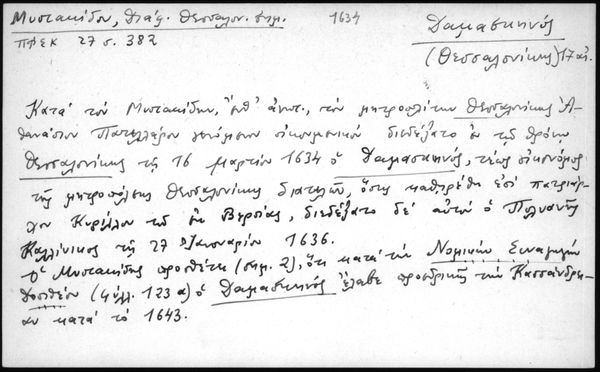 Μυστακίδου, Διάφ. Θεσσαλον. σημ. 1634 Δαμασκηνός
ΠΑΕΚ 27 σ. 382 (Θεσσαλονίκης) 17 αἰ.
Κατά τόν Μυστακίδην, ἔνθ' ἀνωτ., τόν μητροπολίτην Θεσσαλονίκης Ἀ-
θανάσιον Πατελλάρον γενόμενον οἰκουμενικόν διεδέξατο ἐν τῷ θρόνῳ
Θεσσαλονίκης τῇ 16 Μαρτίου 1634 ὁ Δαμασκηνός, τέως οἰκονόμος
τῆς μητροπόλεως Θεσσαλονίκης διατελῶν, ὅστις καθηρέθη ἐπί πατριάρ-
χου Κυρίλλου τοῦ ἐκ Βερροίας, διεδέξατο δέ αὐτόν ὁ Πολυανῆς
Καλλίνικος τῇ 27 Ἰανουαρίου 1636.
Ὁ Μυστακίδης προσθέτει (σημ. 2), ὅτι κατά τήν Νομικήν Συναγωγήν
Δοσιθέου (φύλλ. 123 α) ὁ Δαμασκηνός ἔλαβε προεδρικῶς τήν Κασσάνδρει-
αν κατά τό 1643.